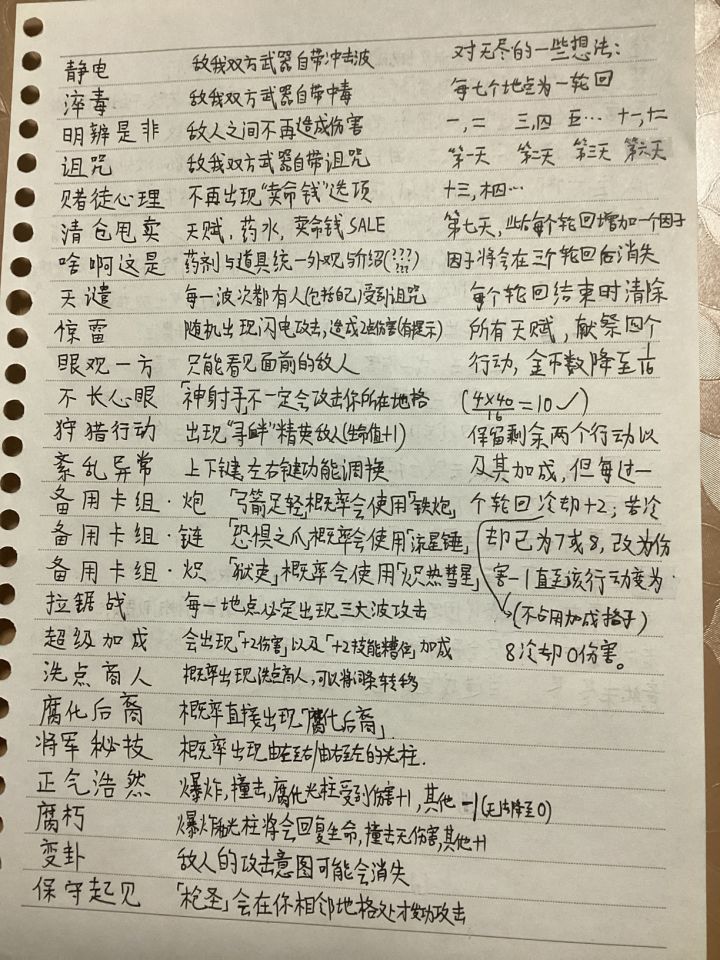 静电 敌我双方武器自带冲击波
淬毒 敌我双方武器自带中毒
明辨是非 敌人之间不再造成伤害
诅咒 敌我双方武器自带诅咒
赌徒心理 不再出现“卖命钱”选项
清仓甩卖 天赋,药水,卖命钱SALE
啥啊这是 药剂与道具统一外观与介绍(??????)
天谴 每一波次都有人(包括自己)受到诅咒
惊雷 随机出现闪电攻击,造成2点伤害(有提示)
眼观一方 只能看见面前的敌人
不长心眼 「神射手」不一定会攻击你所在地格
狩猎行动 出现“寻衅”精英敌人(生命值+1)
紊乱异常 上下键,左右键功能调换
备用卡组·炮 「弓箭足轻」概率会使用「铁炮」
备用卡组·链 「恐惧之爪」概率会使用「流星锤」
备用卡组·炽 「狱吏」概率会使用「炽热彗星」
拉锯战 每一地点必定出现三大波攻击
超级加成 会出现「+2伤害」以及「+2技能槽位」加成
洗点商人 概率出现洗点商人,可以消除转移
腐化后裔 概率直接出现「腐化后裔」.
将军秘技 概率出现由左至右/由右至左的光柱.
正气浩然 爆炸,撞击,腐化光柱受到伤害+1,其他-1(无法降至0)
腐朽 爆炸,光柱将会回复生命,撞击无伤害,其他+1
变卦 敌人的攻击意图可能会消失
保守起见 「枪圣」会在你相邻地格处才发动攻击
对无尽的一些想法:
每七个地点为一轮回
一,二 三,四 五… 十一,十二
第一天 第二天 第三天 第六天
十三,十四…
第七天,此后每个轮回增加一个因子
因子将会在三个轮回后消失
每个轮回结束时清除
所有天赋,献祭四个
行动,金币数降至1/16
(4×40/16=10✓)
保留剩余两个行动以
及其加成,但每过一
个轮回冷却+2;若冷
却已为7或8,改为伤
害-1直至该行动变为·
(不占用加成格子)
8冷却0伤害。